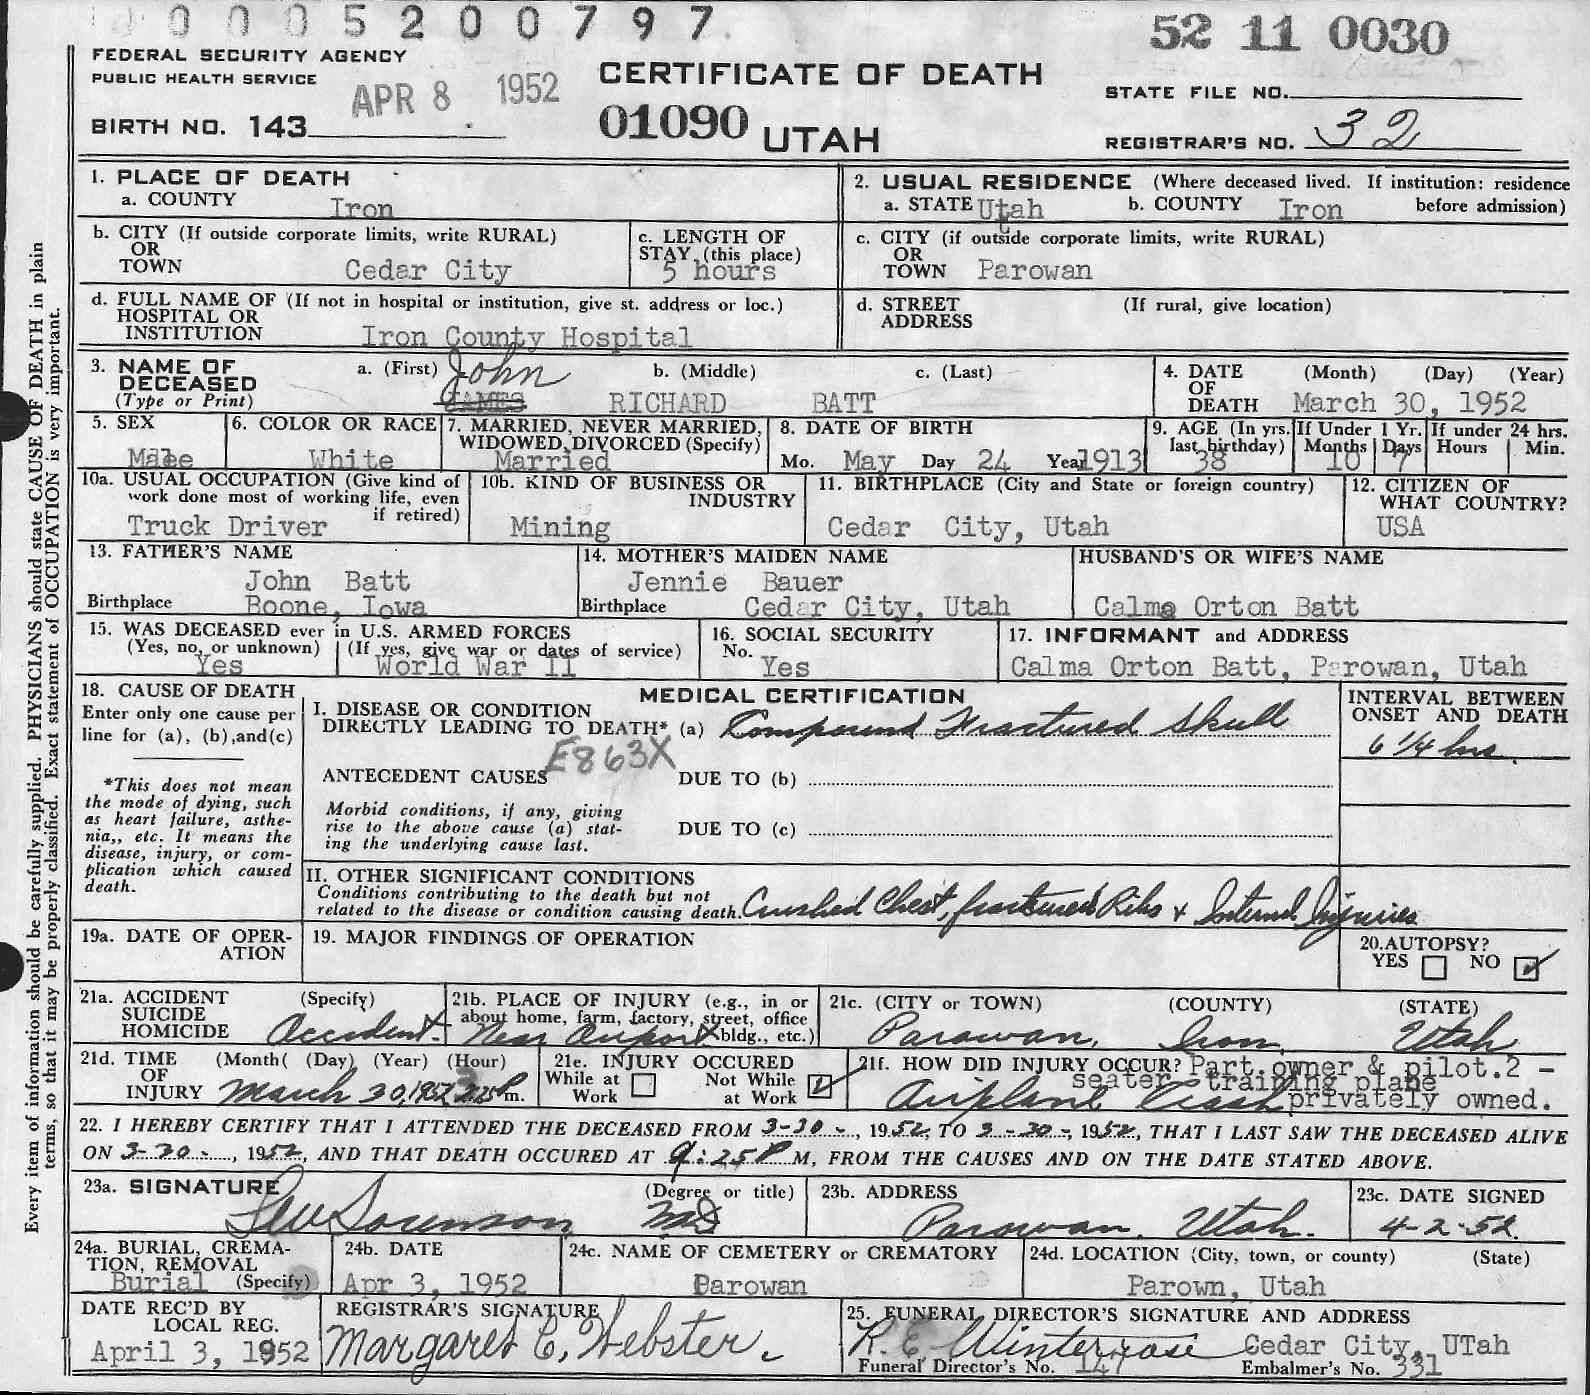 0 0 0 5 2 0 0 7 9 7
52 11 0030
FEDERAL SECURITY AGENCY
PUBLIC HEALTH SERVICE
APR 8 1952
CERTIFICATE OF DEATH
STATE FILE NO.
BIRTH NO. 143
01090 UTAH
REGISTRAR'S NO. 32
Every item of information should be carefully supplied. PHYSICIANS should state CAUSE OF DEATH in plain
terms, so that it may be properly classified. Exact statement of OCCUPATION is very important.
1. PLACE OF DEATH
a. COUNTY Iron
2. USUAL RESIDENCE (Where deceased lived. If institution: residence
a. STATE Utah b. COUNTY Iron before admission)
b. CITY (If outside corporate limits, write RURAL)
OR
TOWN Cedar City
c. LENGTH OF
STAY (this place)
5 hours
c. CITY (if outside corporate limits, write RURAL)
OR
TOWN Parowan
d. FULL NAME OF (If not in hospital or institution, give st. address or loc.)
HOSPITAL OR
INSTITUTION Iron County Hospital
d. STREET (If rural, give location)
ADDRESS
3. NAME OF
DECEASED
(Type or Print)
a. (First) John b. (Middle) c. (Last)
JAMES RICHARD BATT
4. DATE (Month) (Day) (Year)
OF
DEATH March 30, 1952
5. SEX
Male
6. COLOR OR RACE
White
7. MARRIED, NEVER MARRIED,
WIDOWED, DIVORCED (Specify)
Married
8. DATE OF BIRTH
Mo. May Day 24 Year 1913
9. AGE (In yrs.
last birthday)
38
If Under 1 Yr.
Months Days
10 7
If under 24 hrs.
Hours Min.
10a. USUAL OCCUPATION (Give kind of
work done most of working life, even
if retired)
Truck Driver
10b. KIND OF BUSINESS OR
INDUSTRY
Mining
11. BIRTHPLACE (City and State or foreign country)
Cedar City, Utah
12. CITIZEN OF
WHAT COUNTRY?
USA
13. FATHER'S NAME
John Batt
Birthplace Boone, Iowa
14. MOTHER'S MAIDEN NAME
Jennie Bauer
Birthplace Cedar City, Utah
HUSBAND'S OR WIFE'S NAME
Calma Orton Batt
15. WAS DECEASED ever in U.S. ARMED FORCES
(Yes, no, or unknown) (If yes, give war or dates of service)
Yes World War II
16. SOCIAL SECURITY
No. Yes
17. INFORMANT and ADDRESS
Calma Orton Batt, Parowan, Utah
18. CAUSE OF DEATH
Enter only one cause per
line for (a), (b), and (c)
*This does not mean
the mode of dying, such
as heart failure, asthe-
nia,, etc. It means the
disease, injury, or com-
plication which caused
death.
MEDICAL CERTIFICATION
I. DISEASE OR CONDITION
DIRECTLY LEADING TO DEATH* (a) Compound Fractured Skull
E863X
ANTECEDENT CAUSES DUE TO (b)
Morbid conditions, if any, giving
rise to the above cause (a) stat-
ing the underlying cause last.
DUE TO (c)
INTERVAL BETWEEN
ONSET AND DEATH
6 1/4 hrs.
II. OTHER SIGNIFICANT CONDITIONS
Conditions contributing to the death but not
related to the disease or condition causing death. Crushed Chest, fractured Ribs & Internal Injuries
19a. DATE OF OPER-
ATION
19. MAJOR FINDINGS OF OPERATION
20. AUTOPSY?
YES NO
21a. ACCIDENT (Specify)
SUICIDE
HOMICIDE Accident.
21b. PLACE OF INJURY (e.g., in or
about home, farm, factory, street, office
bldg., etc.)
Near airport
21c. (CITY or TOWN) (COUNTY) (STATE)
Parowan, Iron, Utah
21d. TIME (Month( (Day) (Year) (Hour)
OF
INJURY March 30, 1952 3:25P m.
21e. INJURY OCCURED
While at Work Not While at Work
21f. HOW DID INJURY OCCUR? Part owner & pilot.2 -
seater training plane
Airplane Crash privately owned.
22. I HEREBY CERTIFY THAT I ATTENDED THE DECEASED FROM 3-30-, 1952, TO 3-30-, 1952, THAT I LAST SAW THE DECEASED ALIVE
ON 3-30-, 1952, AND THAT DEATH OCCURED AT 9:25P M, FROM THE CAUSES AND ON THE DATE STATED ABOVE.
23a. SIGNATURE (Degree or title)
Sorenson MD
23b. ADDRESS
Parowan, Utah.
23c. DATE SIGNED
4-2-52
24a. BURIAL, CREMA-
TION, REMOVAL
Burial (Specify)
24b. DATE
Apr 3, 1952
24c. NAME OF CEMETERY or CREMATORY
Parowan
24d. LOCATION (City, town, or county) (State)
Parown, Utah
DATE REC'D BY
LOCAL REG.
April 3, 1952
REGISTRAR'S SIGNATURE
Margaret C. Webster.
25. FUNERAL DIRECTOR'S SIGNATURE AND ADDRESS
R. E. Winterrose Cedar City, UTah
Funeral Director's No. 147 Embalmer's No. 331